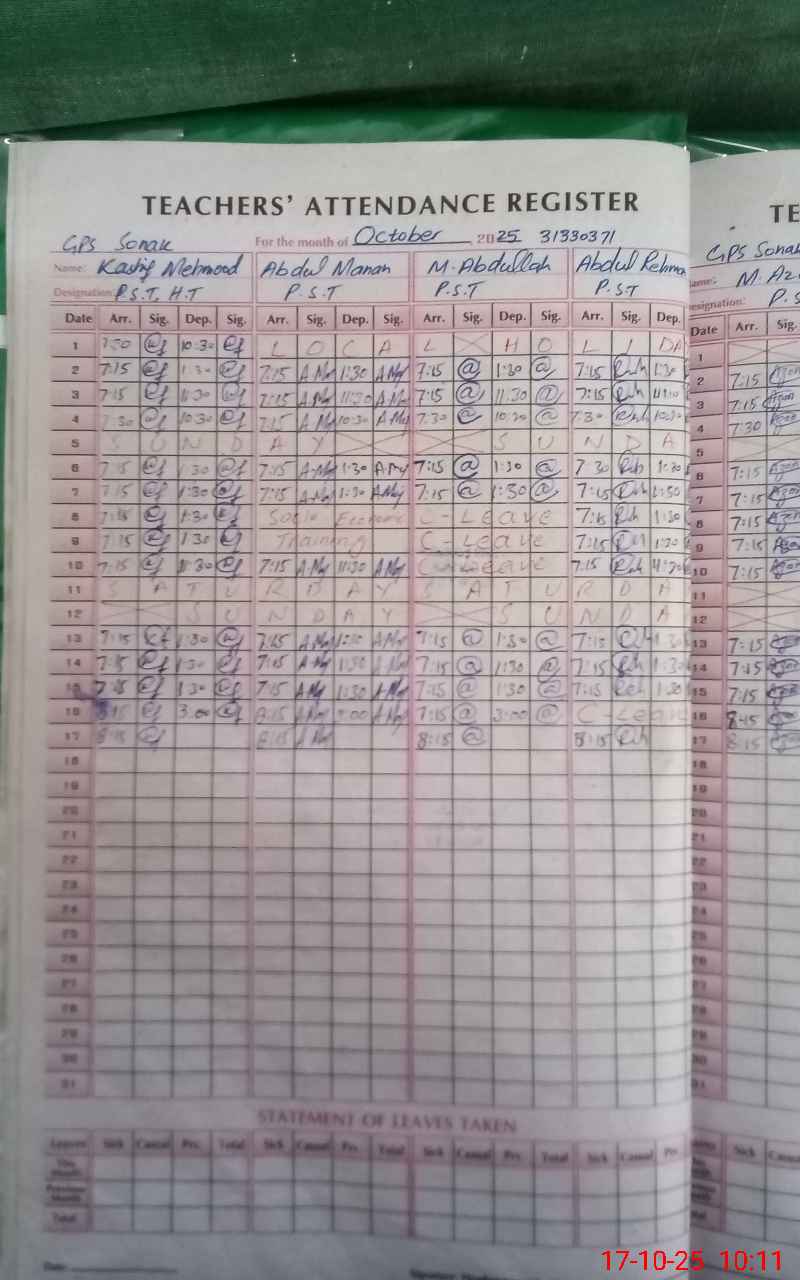 TEACHERS' ATTENDANCE REGISTER
TE
GPS Sonak For the month of October, 2025 31330371
GPS Sonak
Name: Kashif Mehmood Abdul Manan M. Abdullah Abdul Rehman
Name: M. Az
Designation: P.S.T, H.T P.S.T P.S.T P.S.T
Designation: P.S
Date Arr. Sig. Dep. Sig. Arr. Sig. Dep. Sig. Arr. Sig. Dep. Sig. Arr. Sig. Dep.
Date Arr. Sig.
1 7:30 10:30 L O C A L H O L I DA
1
2 7:15 1:30 7:15 A.My 1:30 A.My 7:15 @ 1:30 @ 7:15 1:30
2 7:15
3 7:15 11:30 7:15 A.My 11:30 A.My 7:15 @ 11:30 @ 7:15 11:30
3 7:15
4 7:30 10:30 7:15 A.My 10:30 A.My 7:30 @ 10:30 @ 7:30 10:30
4 7:30
5 S U N D A Y S U N D A
5
6 7:15 1:30 7:15 A.My 1:30 A.My 7:15 @ 1:30 @ 7:30 1:30
6 7:15
7 7:15 1:30 7:15 A.My 1:30 A.My 7:15 @ 1:30 @ 7:15 1:30
7 7:15
8 7:15 1:30 Socio Economic C-Leave 7:15 1:30
8 7:15
9 7:15 1:30 Training C-Leave 7:15 1:30
9 7:15
10 7:15 11:30 7:15 A.My 11:30 A.My C-Leave 7:15
10 7:15
11 S A T U R D A Y S A T U R D A
11
12 S U N D A Y S U N D A
12
13 7:15 1:30 7:15 A.My A.My 7:15 @ 1:30 @ 7:15 1:30
13 7:15
14 7:15 1:30 7:15 A.My 1:30 A.My 7:15 @ 1:30 @ 7:15 1:30
14 7:15
15 7:15 1:30 7:15 A.My 1:30 A.My 7:15 @ 1:30 @ 7:15 1:30
15 7:15
16 8:15 3:00 8:15 A.My 3:00 A.My 7:15 @ 3:00 @ C-Leave
16 8:15
17 8:15 8:15 A.My 8:15 @ 8:15
17 8:15
18
18
19
19
20
20
21
21
22
22
23
23
24
24
25
25
26
26
27
27
28
28
29
29
30
30
31
31
STATEMENT OF LEAVES TAKEN
Leaves Sick Casual Prv. Total Sick Casual Prv. Total Sick Casual Prv. Total Sick Casual Prv.
Sick Casual
This Month
Previous Month
Total
Date
17-10-25 10:11